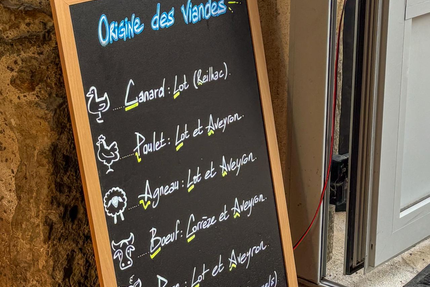 Origine des Viandes
Canard : Lot (Reilhac).
Poulet : Lot et Aveyron.
Agneau : Lot et Aveyron.
Boeuf : Corrèze et Aveyron.
Lot et Aveyron.